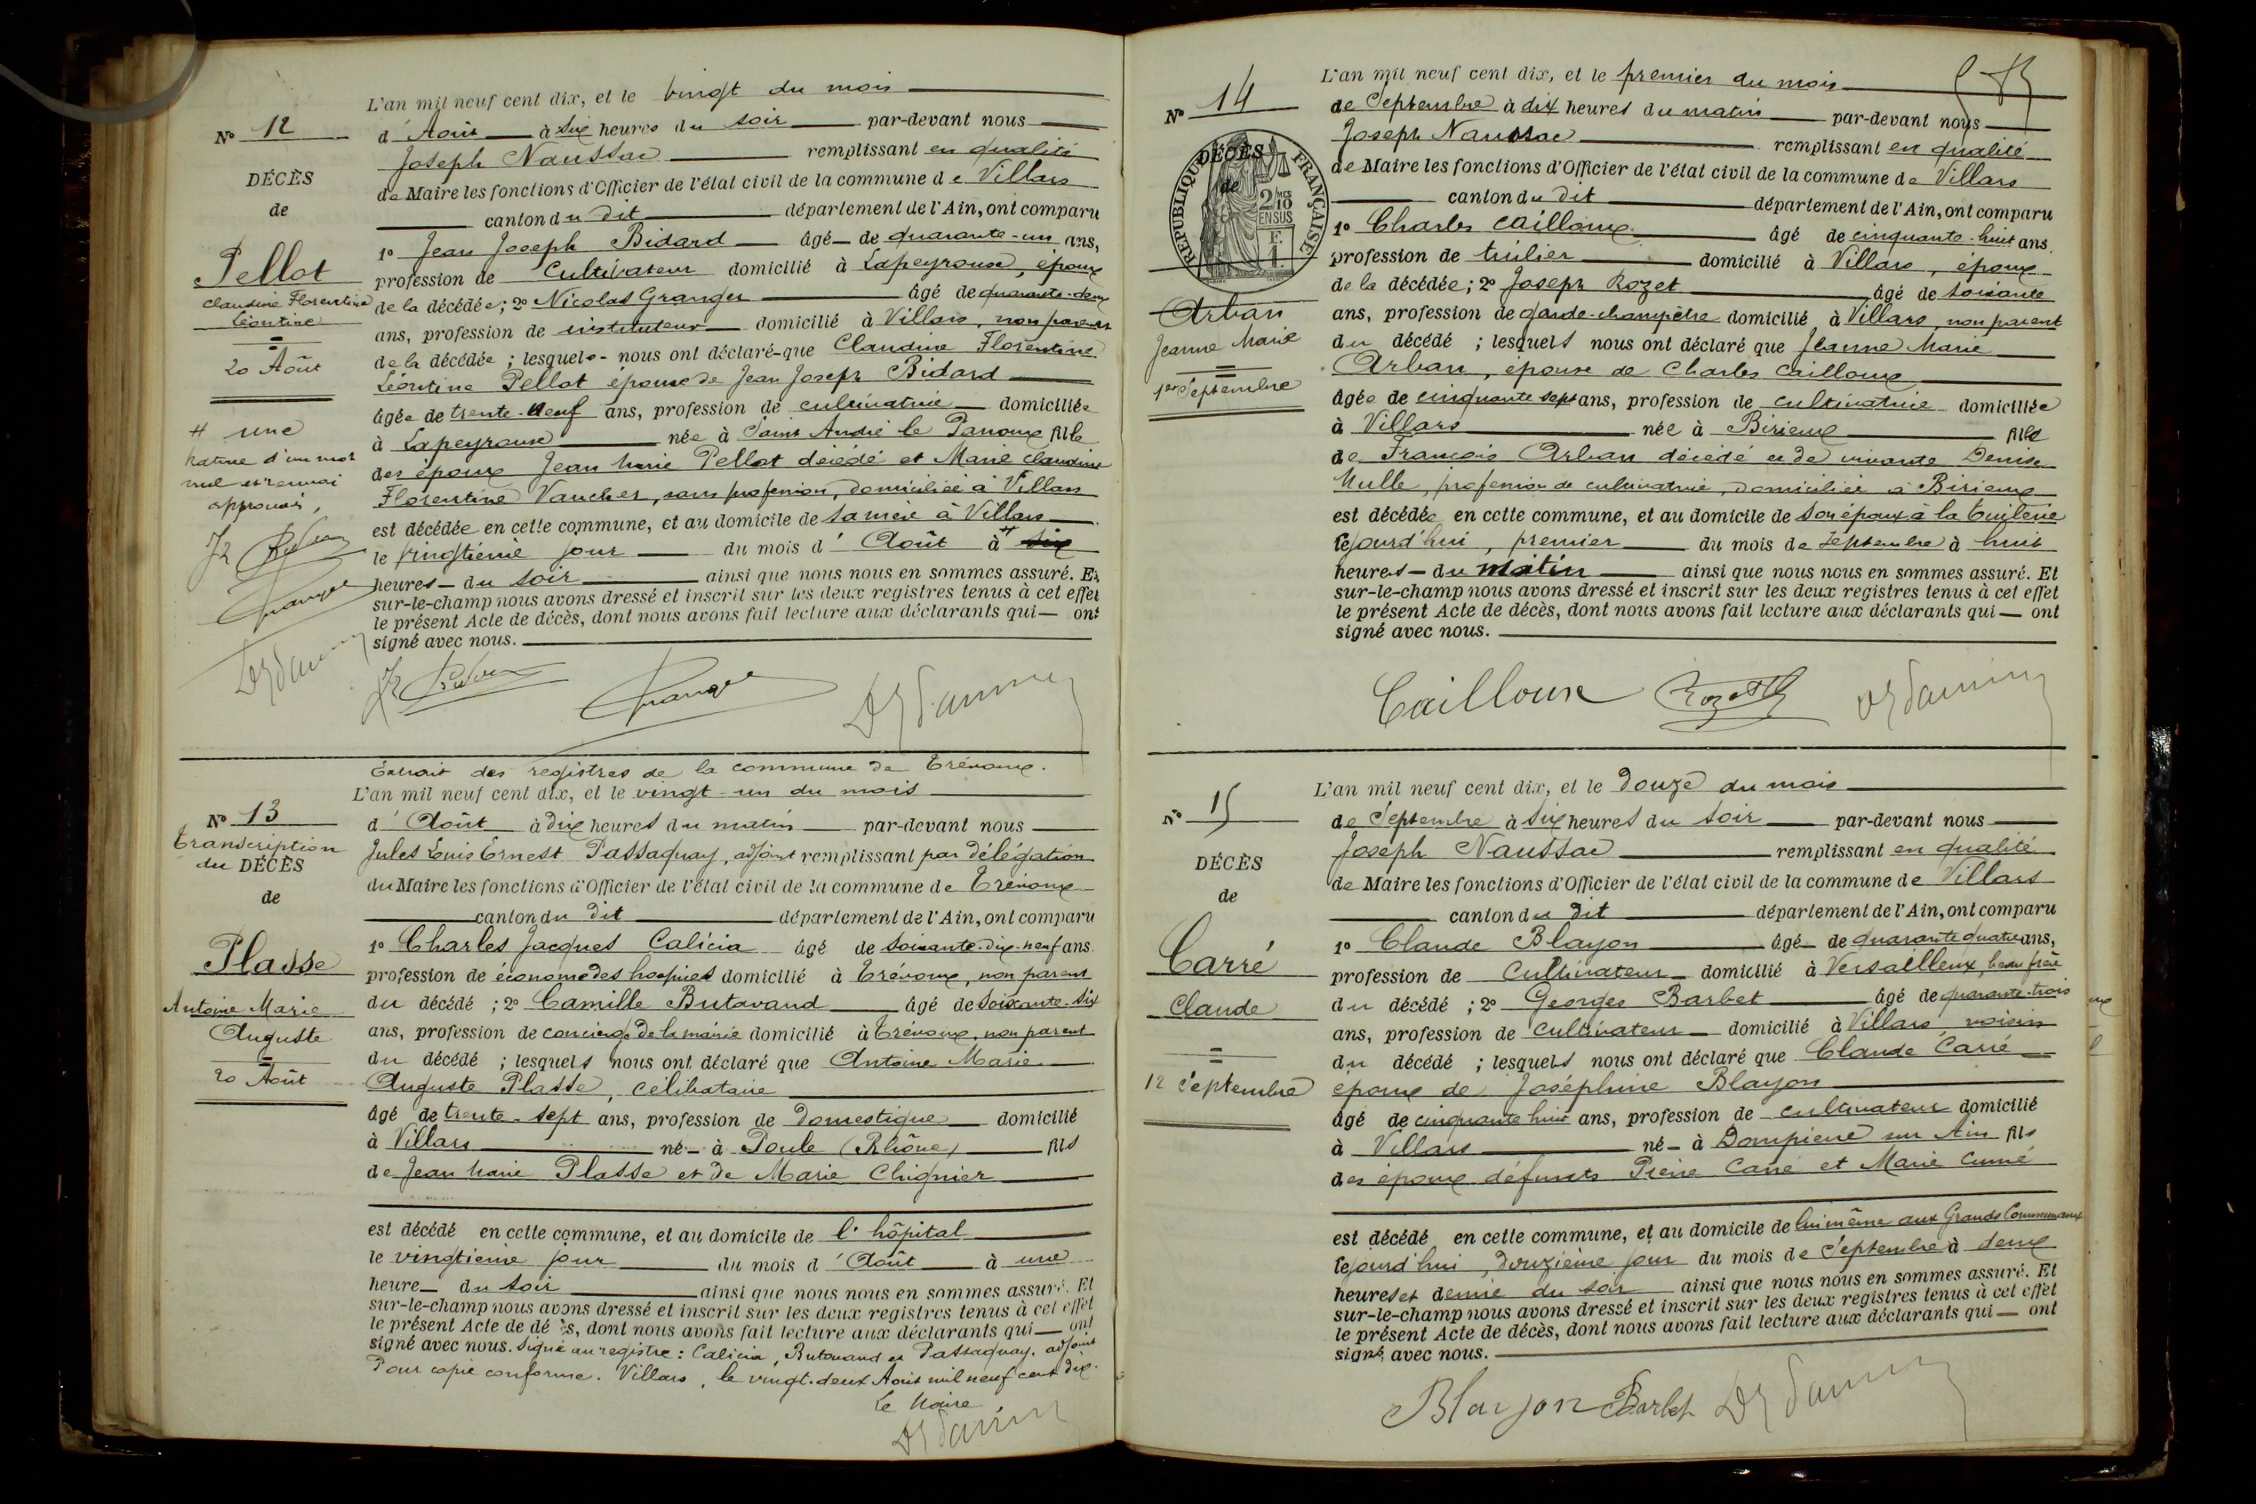 N° 12
DÉCÈS
de
Pellot
Claudine Florentine
Léontine
20 Août
# une
rature d'un mot
nul et renvoi
approuvés,
L'an mil neuf cent dix, et le vingt du mois
d'Août à six heures du soir par-devant nous
Joseph Naussac remplissant en qualité
de Maire les fonctions d'Officier de l'état civil de la commune de Villars
canton du dit département de l'Ain, ont comparu
1° Jean Joseph Bidard âgé de quarante-un ans,
profession de Cultivateur domicilié à Lapeyrouse, époux
de la décédée; 2° Nicolas Granger âgé de quarante-deux
ans, profession de instituteur domicilié à Villars, non parent
de la décédée; lesquels nous ont déclaré que Claudine Florentine
Léontine Pellot épouse de Jean Joseph Bidard
âgée de trente-neuf ans, profession de cultivatrice domiciliée
à Lapeyrouse née à Saint André le Panoux fille
des époux Jean Marie Pellot décédé et Marie Claudine
Florentine Vaucher, sans profession, domiciliée à Villars
est décédée en cette commune, et au domicile de sa mère à Villars
le vingtième jour du mois d'Août à # six
heures du soir ainsi que nous nous en sommes assuré. Et
sur-le-champ nous avons dressé et inscrit sur les deux registres tenus à cet effet
le présent Acte de décès, dont nous avons fait lecture aux déclarants qui ont
signé avec nous.
Granger
N° 13
Transcription
du DÉCÈS
de
Plasse
Antoine Marie
Auguste
20 Août
Extrait des registres de la commune de Trévoux.
L'an mil neuf cent dix, et le vingt-un du mois
d'Août à dix heures du matin par-devant nous
Jules Louis Ernest Passaquay, adjoint remplissant par délégation
du Maire les fonctions d'Officier de l'état civil de la commune de Trévoux
canton du dit département de l'Ain, ont comparu
1° Charles Jacques Calicia âgé de soixante-dix-neuf ans
profession de économe des hospices domicilié à Trévoux, non parent
du décédé; 2° Camille Butavand âgé de soixante-six
ans, profession de concierge de la mairie domicilié à Trévoux, non parent
du décédé; lesquels nous ont déclaré que Antoine Marie
Auguste Plasse, célibataire
âgé de trente-sept ans, profession de Domestique domicilié
à Villars né à Poule (Rhône) fils
de Jean Marie Plasse et de Marie Chignier
est décédé en cette commune, et au domicile de l'hôpital
le vingtième jour du mois d'Août à une
heure du soir ainsi que nous nous en sommes assuré. Et
sur-le-champ nous avons dressé et inscrit sur les deux registres tenus à cet effet
le présent Acte de décès, dont nous avons fait lecture aux déclarants qui ont
signé avec nous. Signé au registre: Calicia, Butavand et Passaquay, adjoint
Pour copie conforme. Villars, le vingt-deux Août mil neuf cent dix.
Le Maire
N° 14
DÉCÈS
de
RÉPUBLIQUE FRANÇAISE
2/10
EN SUS
Arban
Jeanne Marie
1er Septembre
L'an mil neuf cent dix, et le premier du mois
de Septembre à dix heures du matin par-devant nous
Joseph Naussac remplissant en qualité
de Maire les fonctions d'Officier de l'état civil de la commune de Villars
canton du dit département de l'Ain, ont comparu
1° Charles Cailloux âgé de cinquante-huit ans
profession de tuilier domicilié à Villars, époux
de la décédée; 2° Joseph Rozet âgé de soixante
ans, profession de garde-champêtre domicilié à Villars, non parent
du décédé; lesquels nous ont déclaré que Jeanne Marie
Arban, épouse de Charles Cailloux
âgée de cinquante sept ans, profession de cultivatrice domiciliée
à Villars née à Birieux fille
de François Arban décédé et de vivante Denise
Mulle, profession de cultivatrice, domiciliée à Birieux
est décédée en cette commune, et au domicile de son époux à la Tuilerie
cejourd'hui, premier du mois de Septembre à huit
heures du matin ainsi que nous nous en sommes assuré. Et
sur-le-champ nous avons dressé et inscrit sur les deux registres tenus à cet effet
le présent Acte de décès, dont nous avons fait lecture aux déclarants qui ont
signé avec nous.
Cailloux Rozet
N° 15
DÉCÈS
de
Carré
Claude
12 Septembre
L'an mil neuf cent dix, et le Douze du mois
de Septembre à six heures du soir par-devant nous
Joseph Naussac remplissant en qualité
de Maire les fonctions d'Officier de l'état civil de la commune de Villars
canton du dit département de l'Ain, ont comparu
1° Claude Blayon âgé de quarante quatre ans,
profession de Cultivateur domicilié à Versailleux, beau frère
du décédé; 2° Georges Barbet âgé de quarante-trois
ans, profession de cultivateur domicilié à Villars, voisin
du décédé; lesquels nous ont déclaré que Claude Carré
époux de Joséphine Blayon
âgé de cinquante huit ans, profession de cultivateur domicilié
à Villars né à Dompierre sur Ain fils
des époux défunts Pierre Carré et Marie Cumé
est décédé en cette commune, et au domicile de lui même aux Grands Communaux
cejourd'hui, douzième jour du mois de Septembre à deux
heures et demie du soir ainsi que nous nous en sommes assuré. Et
sur-le-champ nous avons dressé et inscrit sur les deux registres tenus à cet effet
le présent Acte de décès, dont nous avons fait lecture aux déclarants qui ont
signé avec nous.
Blayon Barbet